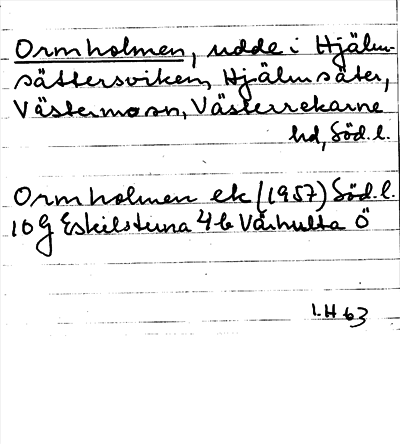 Ormholmen, udde i Hjälm-
sättersviken, Hjälmsäter,
Västermo sn, Västerrekarne
hd, Söd. l.
Ormholmen ek (1957) Söd. l.
10g Eskilstuna 4b Värhulta Ö
LH 63